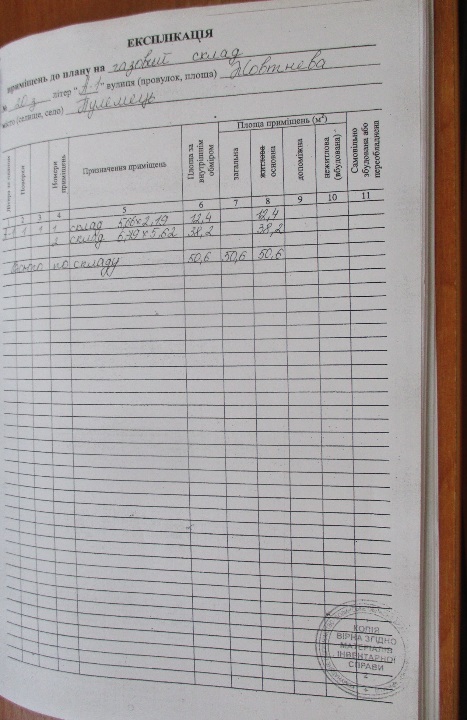 ЕКСПЛІКАЦІЯ
приміщень до плану на газовий склад
літер "А-1" вулиця (провулок, площа) Жовтнева
місто (селище, село) Пулемець
Номери
Номери приміщень
Призначення приміщень
Площа за внутрішнім обміром
Площа приміщень (м²)
загальна
житлова основна
допоміжна
нежитлова (вбудована)
Самовільно збудована або переобладнана
2 3 4 5 6 7 8 9 10 11
1 1 1 склад 12,4 12,4
2 склад 6,79 x 5,62 38,2 38,2
Всього по складу 50,6 50,6 50,6
КОПІЯ
ВІРНА ЗГІДНО
МАТЕРІАЛІВ
ІНВЕНТАРНОЇ
СПРАВИ